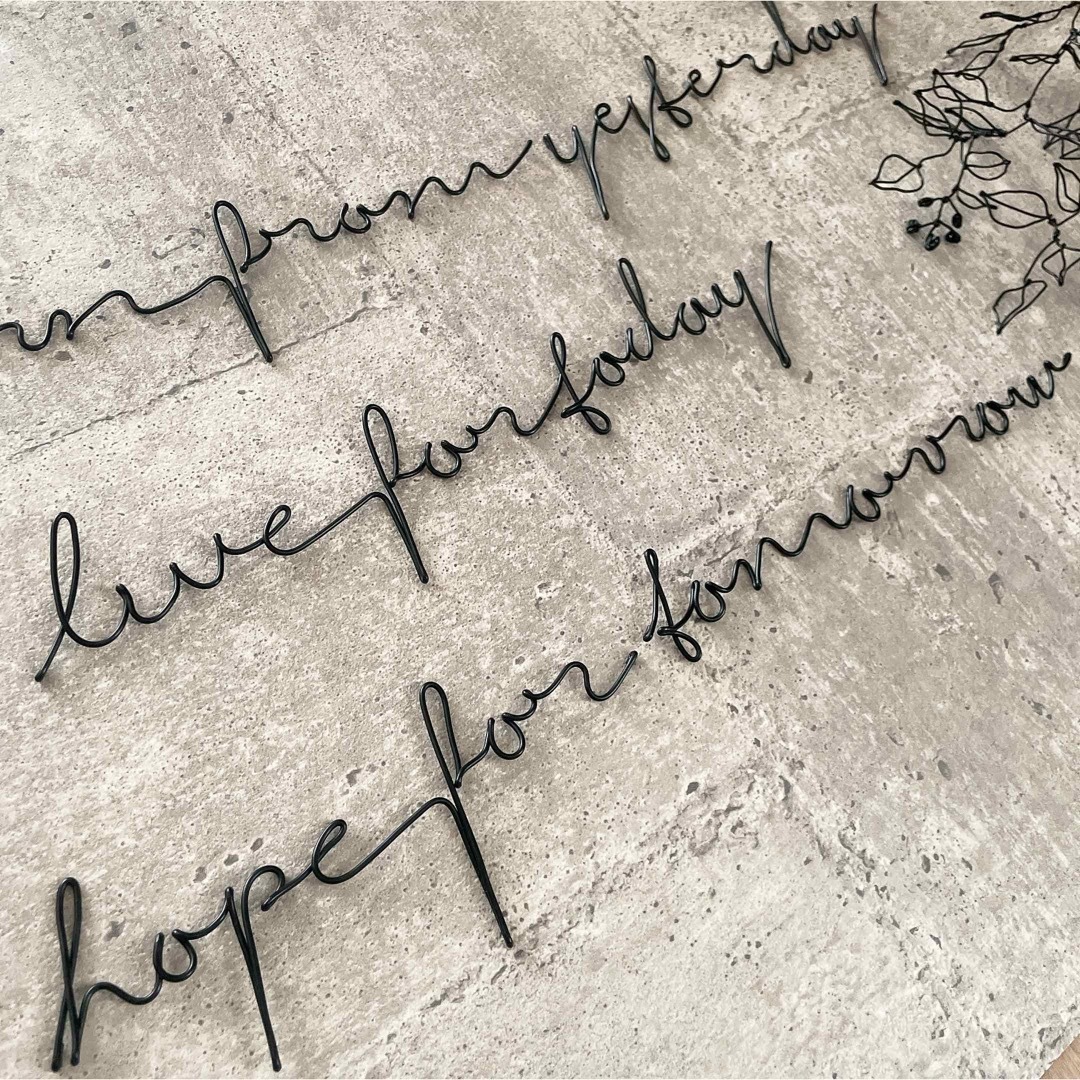 from yesterday
live for today
hope for tomorrow